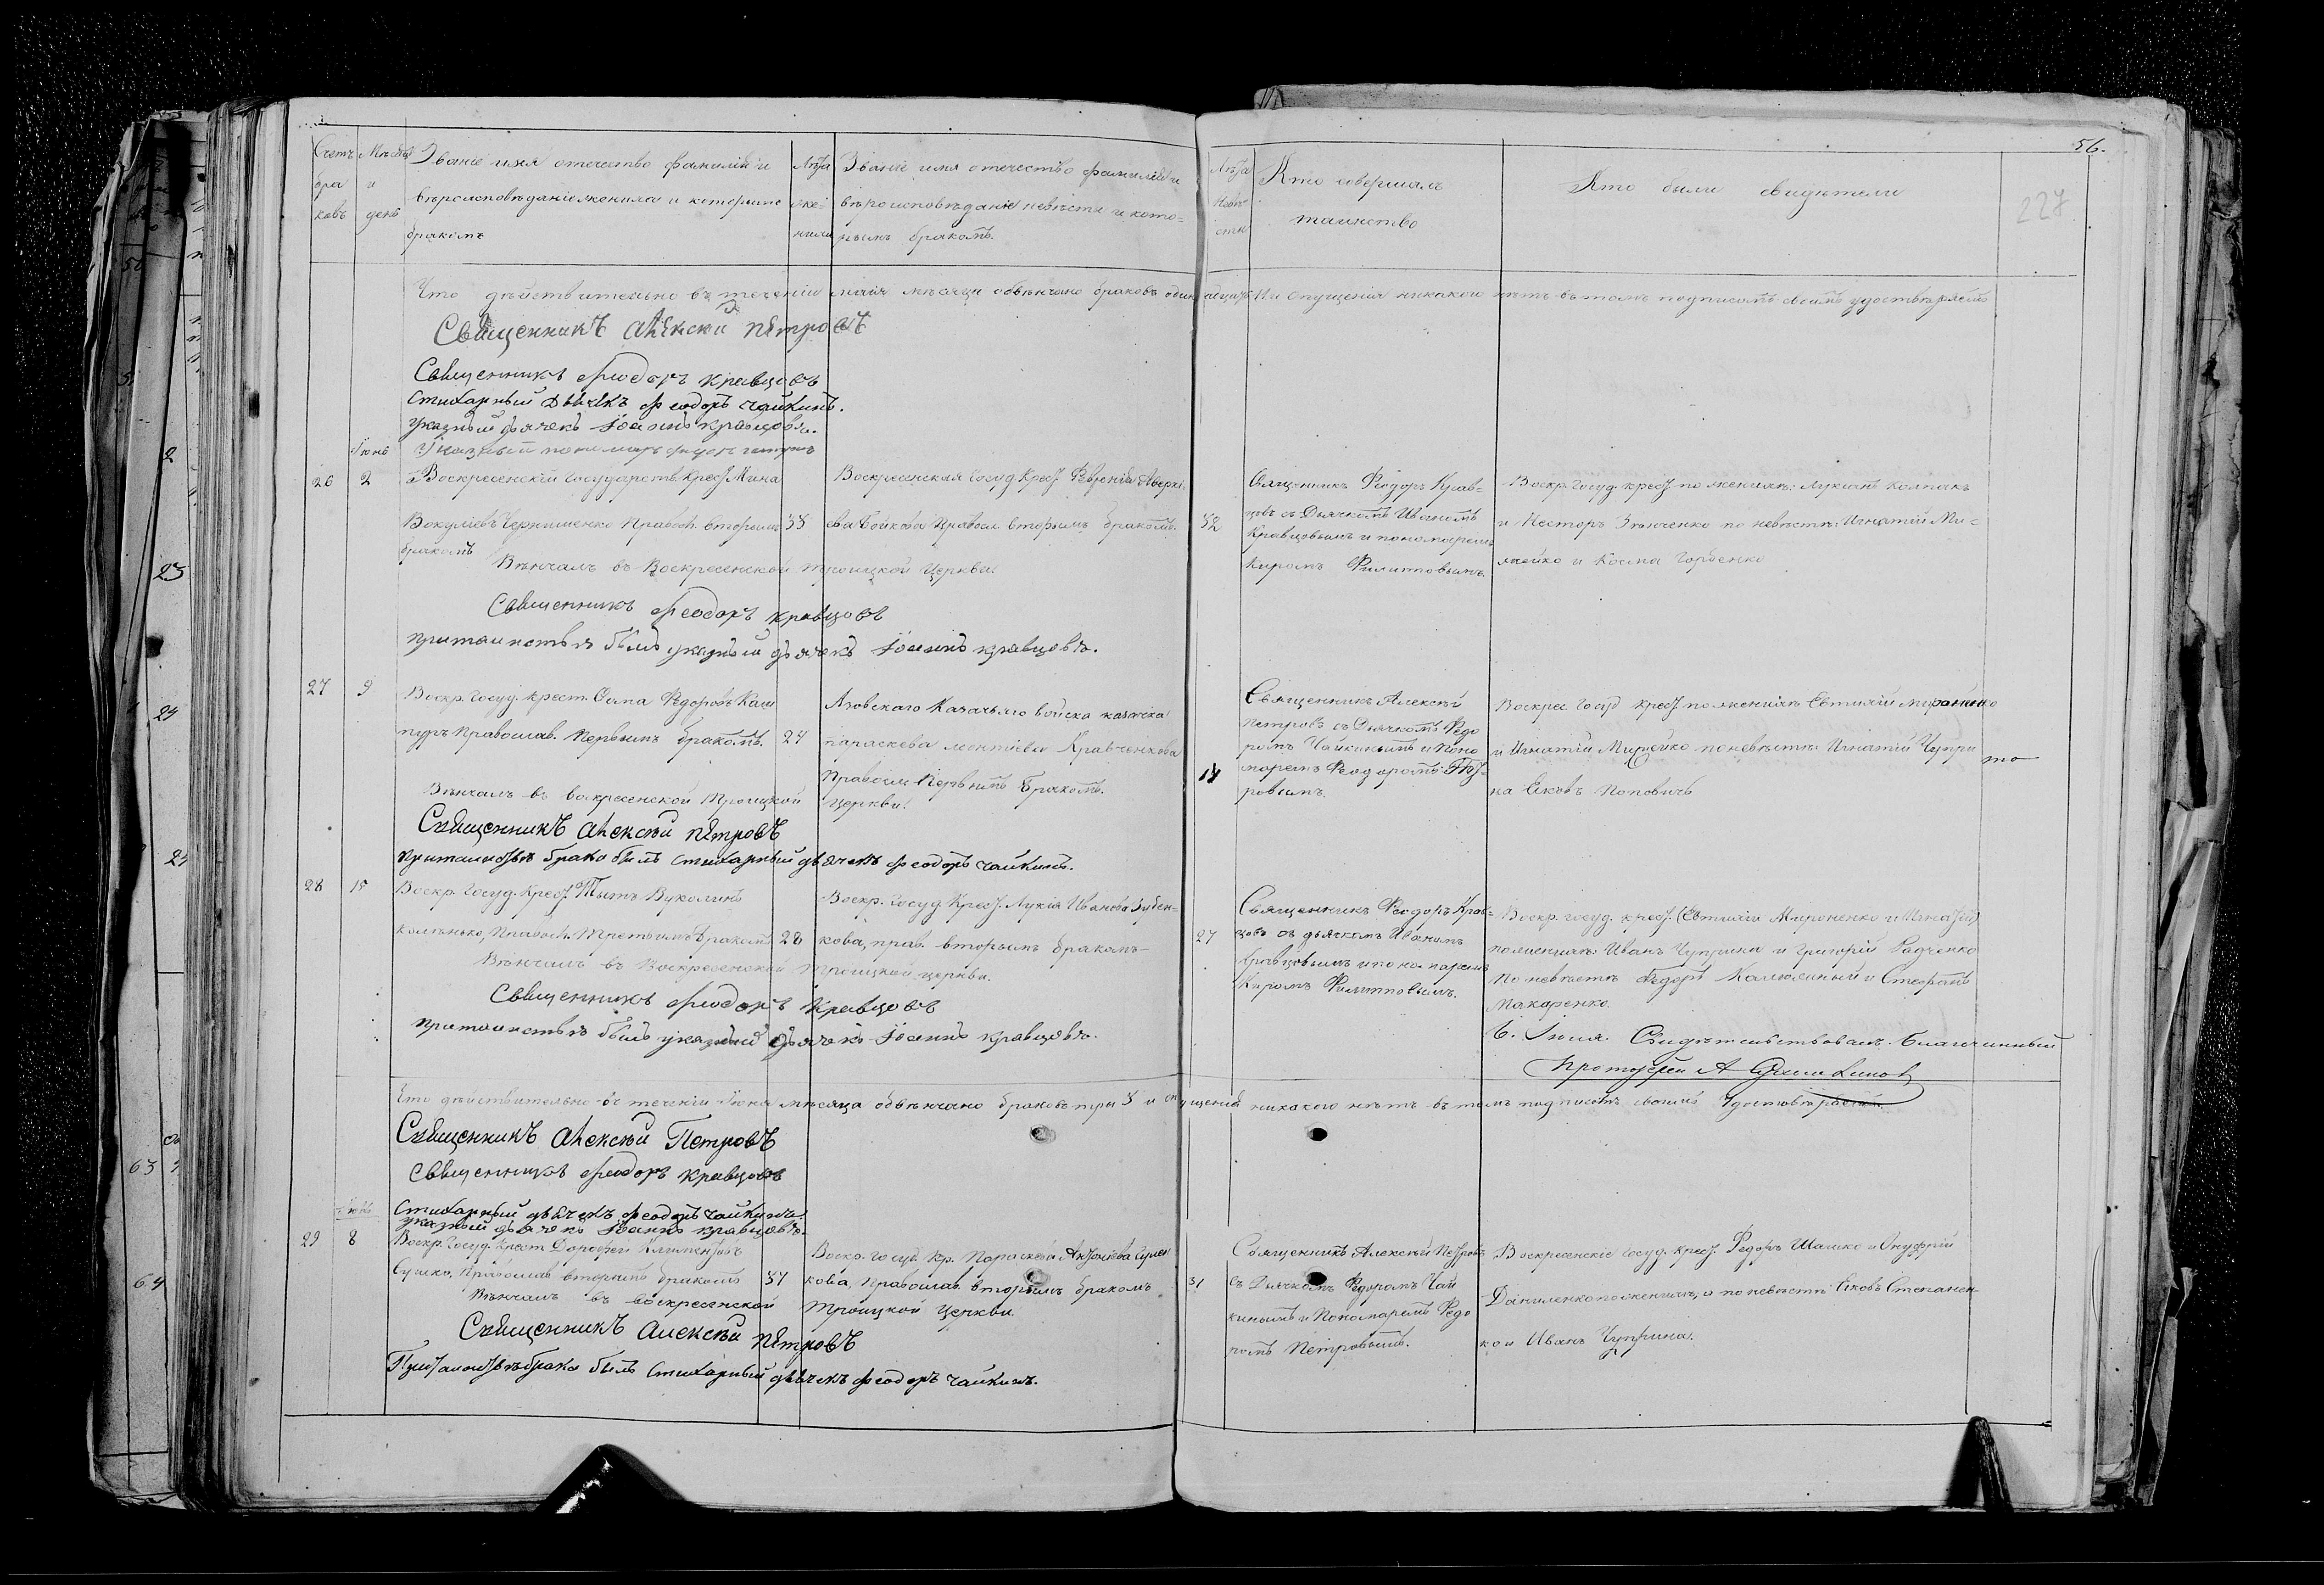 56.
227
Счетъ бра ковъ
Мѣсяц и день
Званіе имя отечество фамилія и
вѣроисповѣданіе жениха и которымъ
бракомъ
Лѣта же- ниха
Званіе имя отечество фамилія и
вѣроисповѣданіе невѣсты и кото-
рымъ бракомъ.
Лѣта невѣ сты
Кто совершалъ
таинство
Кто были свидѣтели
Что дѣйствительно въ теченіи маія мѣсяца обвѣнчано браковъ и опущенія никакого нѣтъ въ томъ подписомъ своимъ удостовѣряемъ
Священникъ Алексѣй Петровъ
Священникъ Феодоръ Кравцовъ
Стихарный дьячекъ Феодоръ Чайкинъ.
Указный дьячекъ Іоаннъ Кравцовъ.
Указный пономарь
Іюнь
26 2
Воскресенскій Государств. Крест. Мина
Вокуліевъ Чернишенко Правосл. вторымъ
бракомъ
Воскресенская Госуд. Крест. Аверкі-
ева Бойкова Правосл. вторымъ бракомъ.
52
Священникъ Феодоръ Крав-
цовъ съ Дьячкомъ Иваномъ
Кравцовымъ и пономаремъ
Киромъ Филиповымъ.
Воскр. Госуд. крест. по женихѣ: Лукіанъ Колпакъ
и Несторъ по невѣстѣ: Игнатій Ми-
и Косма Горбенко
Вѣнчалъ въ Воскресенской Троицкой Церкви.
Священникъ Феодоръ Кравцовъ
При таинствѣ былъ указный дьячекъ Іоаннъ Кравцовъ.
27 9
Воскр. Госуд. Крест. Фома Федоровъ Каш
пуръ Православ. Первымъ бракомъ. 24
Азовскаго Казачьяго войска казачка
Параскева Кравченкова
Правосл. Первымъ бракомъ.
Священникъ Алексѣй
Петровъ съ Дьячкомъ Федо
ромъ Чайкинымъ и Поно
маремъ Феодоромъ Пет-
ровымъ.
Воскрес. Госуд. крест. по женихѣ Евтихій Мироненко
и Игнатій по невѣстѣ: Игнатій Чупри
на Яковъ Поповичъ
Вѣнчалъ въ Воскресенской Троицкой Церкви.
Священникъ Алексѣй Петровъ
При таинствѣ брака былъ стихарный дьячекъ Феодоръ Чайкинъ.
28 15
Воскр. Госуд. Крест. Титъ Вуколинъ
Правосл. Третьимъ бракомъ 28
Воскр. Госуд. Крест. Лукія Иванова Зубен-
кова, прав. вторымъ бракомъ
27
Священникъ Феодоръ Крав-
цовъ съ дьячкомъ Иваномъ
Кравцовымъ и пономаремъ
Киромъ Филиповымъ.
Воскр. госуд. крест. (Евтихій Мироненко и Игнатій)
по женихѣ: Иванъ Чуприна и Григорій Радченко
По невѣстѣ Федоръ и Стефанъ
Макаренко.
Вѣнчалъ въ Воскресенской Троицкой церкви.
Священникъ Феодоръ Кравцовъ
При таинствѣ былъ указный дьячекъ Іоаннъ Кравцовъ.
6. Іюля. Свидѣтельствовалъ. Благочинный
Протоіерей А
Что дѣйствительно въ теченіи Іюня мѣсяца обвѣнчано браковъ три 3 и опущенія никакого нѣтъ въ томъ подписомъ своимъ удостовѣряемъ.
Священникъ Алексѣй Петровъ
Священникъ Феодоръ Кравцовъ
Стихарный дьячекъ Феодоръ Чайкинъ.
Указный дьячекъ Іоаннъ Кравцовъ.
29 8
Воскр. Госуд. Крест. Дорофей Климентовъ
Сушко, Православ. вторымъ бракомъ
Воскр. Госуд. Кр. Параскева
кова, Православ. вторымъ бракомъ
31
Священникъ Алексѣй Петровъ
съ Дьячкомъ Федоромъ Чай
кинымъ и Пономаремъ Федо
ромъ Петровымъ.
Воскресенскіе Госуд. крест. Федоръ Шашко и Онуфрій
Даниленко по женихѣ; а по невѣстѣ: Яковъ Степанен-
ко и Иванъ Чуприна.
Вѣнчалъ въ Воскресенской Троицкой Церкви.
Священникъ Алексѣй Петровъ
При таинствѣ брака былъ стихарный дьячекъ Феодоръ Чайкинъ.